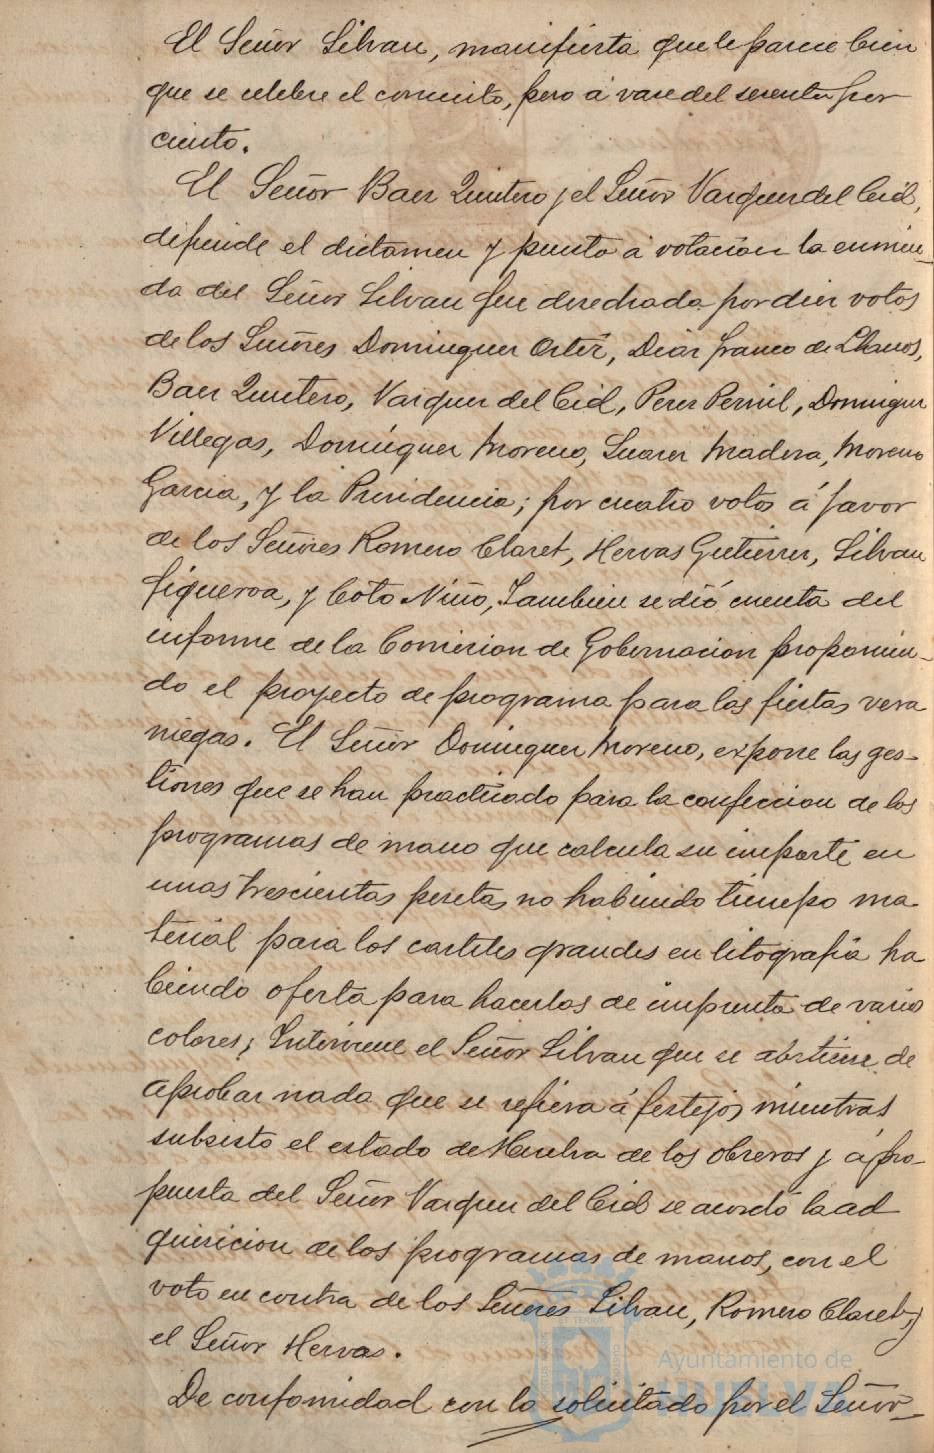 El Señor Silvan, manifiesta que le parece bien
que se celebre el concierto, pero á vase del sesenta por
ciento.
El Señor Baez Quintero y el Señor Vazquez del Cid,
difiende el dictamen y puesta á votación la enmien-
da del Señor Silvan fue desechada por diez votos
de los Señores Dominguez Ortiz, Diaz franco de Llanos,
Baez Quintero, Vazquez del Cid, Perez Pernil, Dominguez
Villegas, Domínguez Moreno, Suarez Madera, Moreno
Garcia, y la Presidencia; por cuatro votos á favor
de los Señores Romero Claret, Hervas Gutierrez, Silvan
figueroa, y Coto Niño, Tambien se dió cuenta del
informe de la Comision de Gobernacion proponien-
do el proyecto de programa para las fiestas vera
niegas. El Señor Dominguez Moreno, expone las ges-
tiones que se han practicado para la confeccion de los
programas de mano que calcula su importe en
unas trescientas pesetas no habiendo tiempo ma-
terial para los carteles grandes en litografía ha
biendo oferta para hacerlos de imprenta de varios
colores; Interviene el Señor Silvan que se abstiene de
aprobar nada que se refiera á festejos mientras
subsista el estado de Huelva de los obreros y á pro-
puesta del Señor Vazquez del Cid se acordó la ad
quisicion de los programas de manos, con el
voto en contra de los Señores Silvan, Romero Claret y
el Señor Hervas.
De confomidad con lo solicitado por el Señor-
Ayuntamiento de
HUELVA